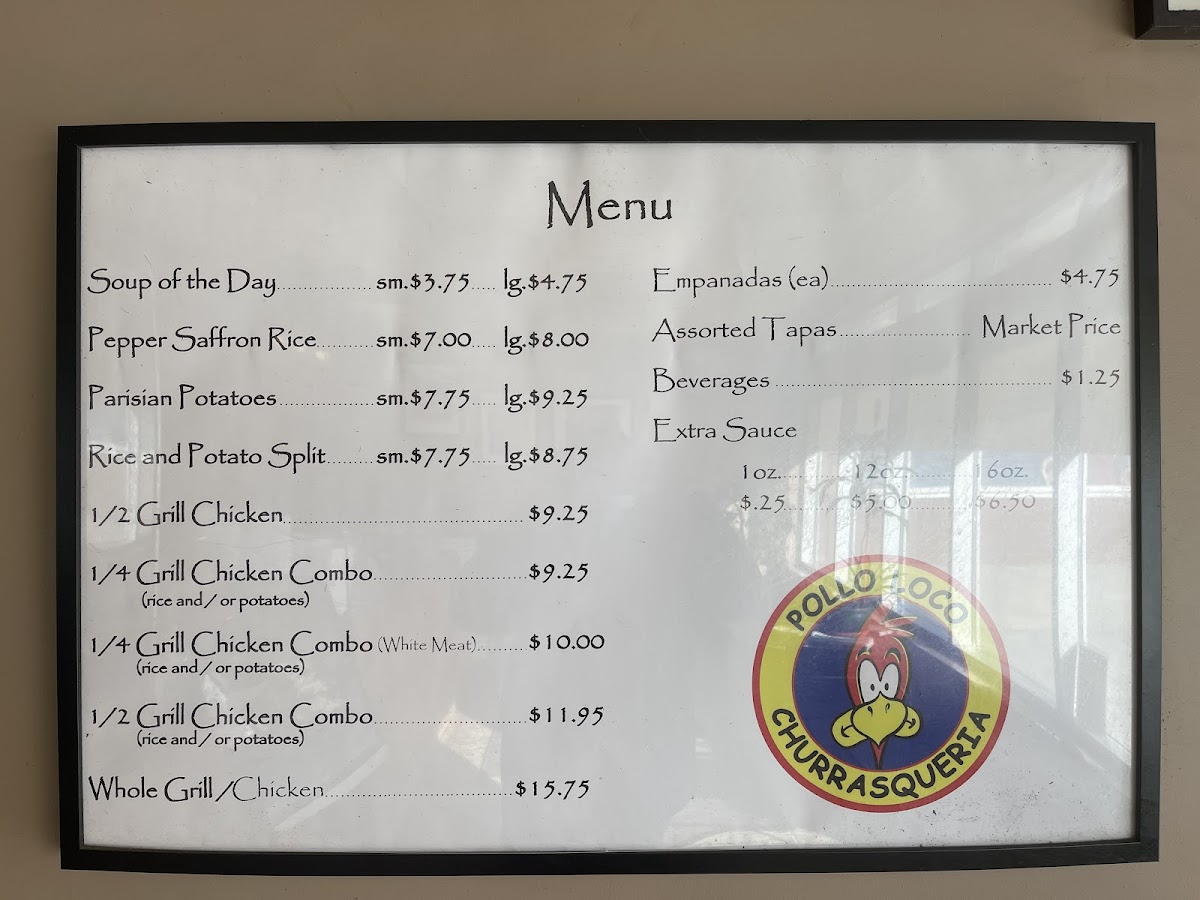 Menu
Soup of the Day................. sm.$3.75..... lg.$4.75
Pepper Saffron Rice........... sm.$7.00..... lg.$8.00
Parisian Potatoes.................sm.$7.75..... lg.$9.25
Rice and Potato Split.........sm.$7.75..... lg.$8.75
1/2 Grill Chicken........................................... $9.25
1/4 Grill Chicken Combo........................... $9.25
(rice and / or potatoes)
1/4 Grill Chicken Combo (White Meat)......... $10.00
(rice and / or potatoes)
1/2 Grill Chicken Combo........................... $11.95
(rice and / or potatoes)
Whole Grill /Chicken.................................$15.75
Empanadas (ea)........................................ $4.75
Assorted Tapas........................ Market Price
Beverages .................................................. $1.25
Extra Sauce
1oz.............12oz.............16oz.
$.25............$5.00............$6.50
POLLO LOCO
CHURRASQUERIA